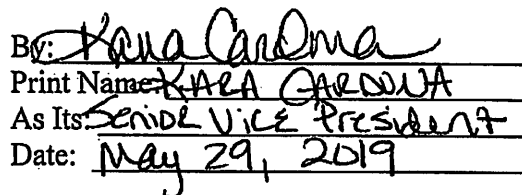 By: Kara Cardona
Print Name: KARA CARDONA
As Its: Senior Vice President
Date: May 29, 2019